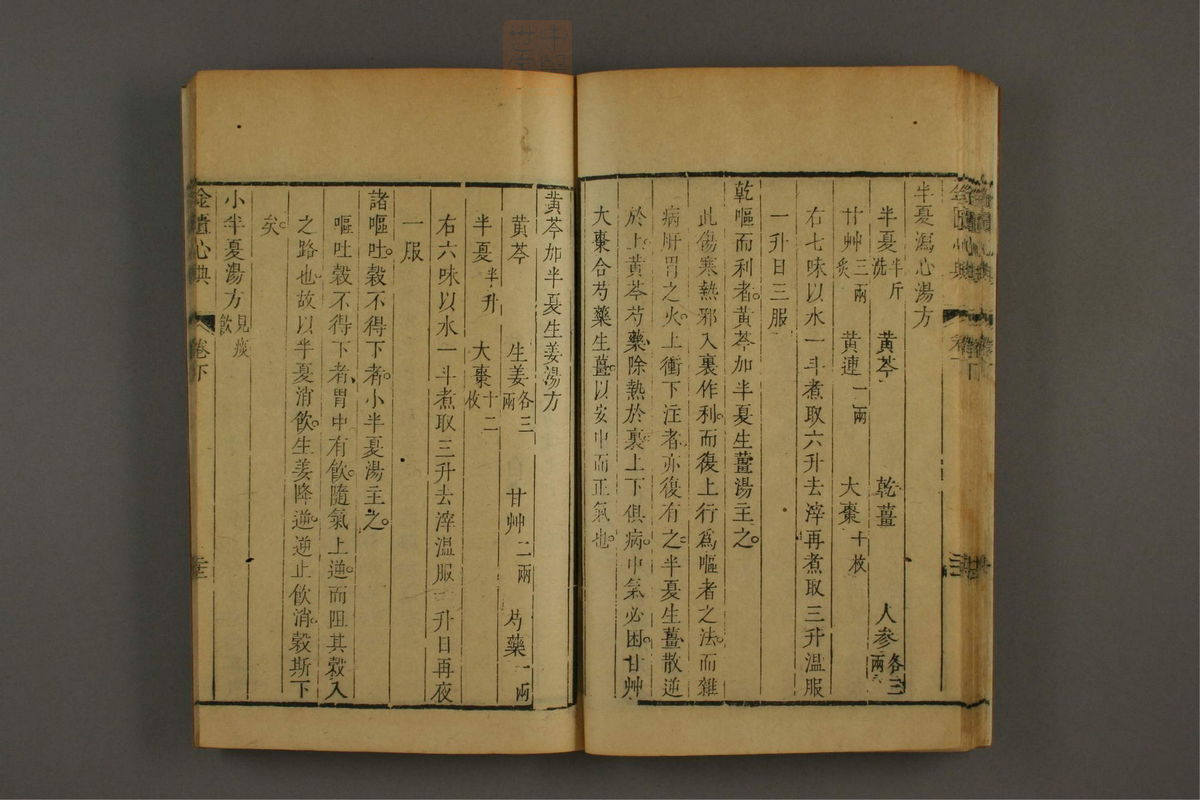 半夏瀉心湯方
半夏半斤洗 黃芩 乾薑 人參各三兩
甘艸三兩炙 黃連一兩 大棗十枚
右七味以水一斗煮取六升去滓再煮取三升溫服
一升日三服
乾嘔而利者。黃芩加半夏生薑湯主之。
此傷寒熱邪入裏作利。而復上行為嘔者之法。而雜
病肝胃之火。上衝下注者。亦復有之。半夏生薑散逆
於上。黃芩芍藥。除熱於裏。上下俱病。中氣必困。甘艸
大棗合芍藥生薑。以安中而正氣也。
黃芩加半夏生姜湯方
黃芩 生姜各三兩 甘艸二兩 芍藥一兩
半夏半升 大棗十二枚
右六味以水一斗煮取三升去滓溫服一升日再夜
一服
諸嘔吐。穀不得下者。小半夏湯主之。
嘔吐穀不得下者、胃中有飲。隨氣上逆。而阻其穀入
之路也。故以半夏消飲。生姜降逆。逆止飲消。穀斯下
矣。
小半夏湯方見痰飲
金匱心典 卷下